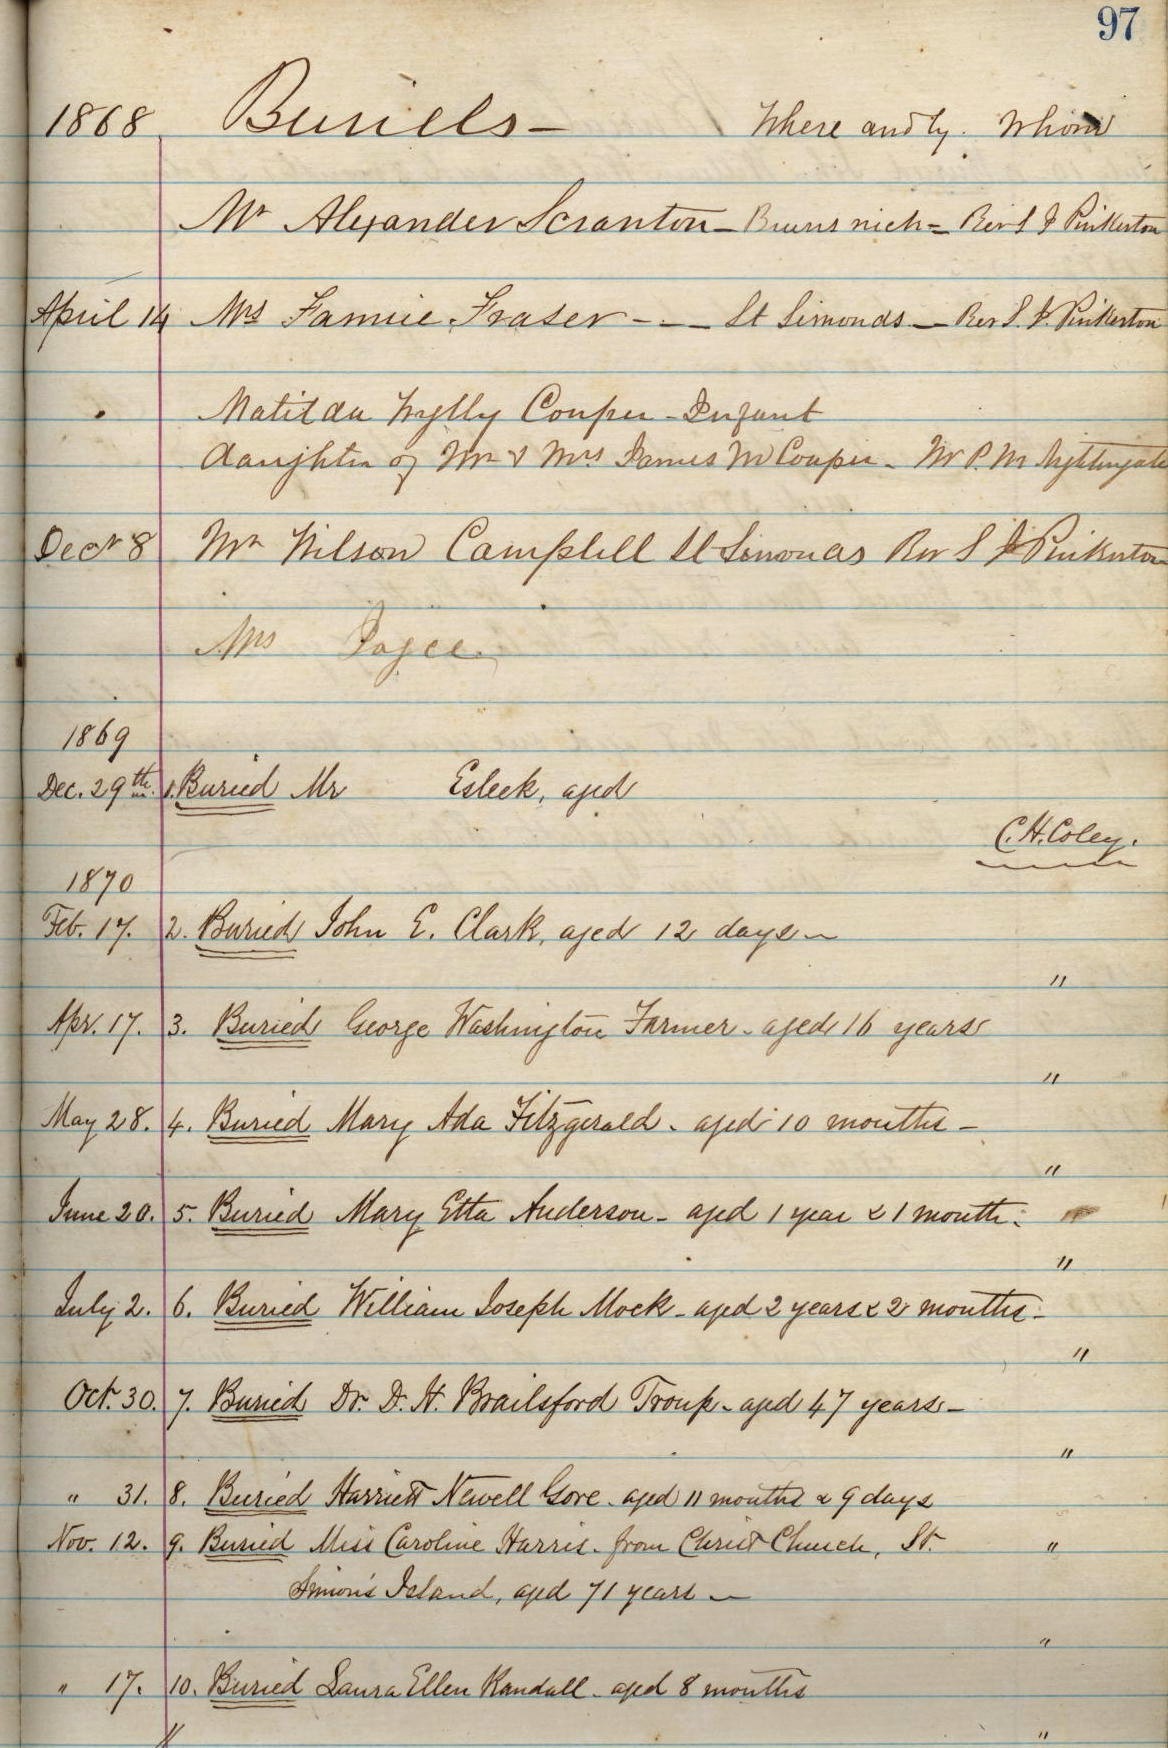 97
1868 Buriels — Where and by Whom
Mr Alexander Scranton — Brunswick = Rev S J Pinkerton
April 14 Mrs Fannie Fraser - - — St Simonds — Rev S. J. Pinkerton
Matilda Wylly Couper - Infant
daughter of Mr & Mrs James M Couper - Mr P. M Nightingale
Decr 8 Mr Wilson Campbell St Simonds Rev S J Pinkerton
Mrs Joyce
1869
Dec. 29th. 1. Buried Mr Esleek, aged
C. H. Coley.
1870
Feb. 17. 2. Buried John E. Clark, aged 12 days —
"
Apr. 17. 3. Buried George Washington Farmer - aged 16 years
"
May 28. 4. Buried Mary Ada Fitzgerald - aged 10 months -
"
June 20. 5. Buried Mary Etta Anderson - aged 1 year & 1 month.
"
July 2. 6. Buried William Joseph Mock - aged 2 years & 2 months -
"
Oct. 30. 7. Buried Dr. D. H. Brailsford Troup - aged 47 years -
"
" 31. 8. Buried Harriett Newell Gore - aged 11 months & 9 days
Nov. 12. 9. Buried Miss Caroline Harris - from Christ Church, St. "
Simon's Island, aged 71 years —
"
" 17. 10. Buried Laura Ellen Randall - aged 8 months
"